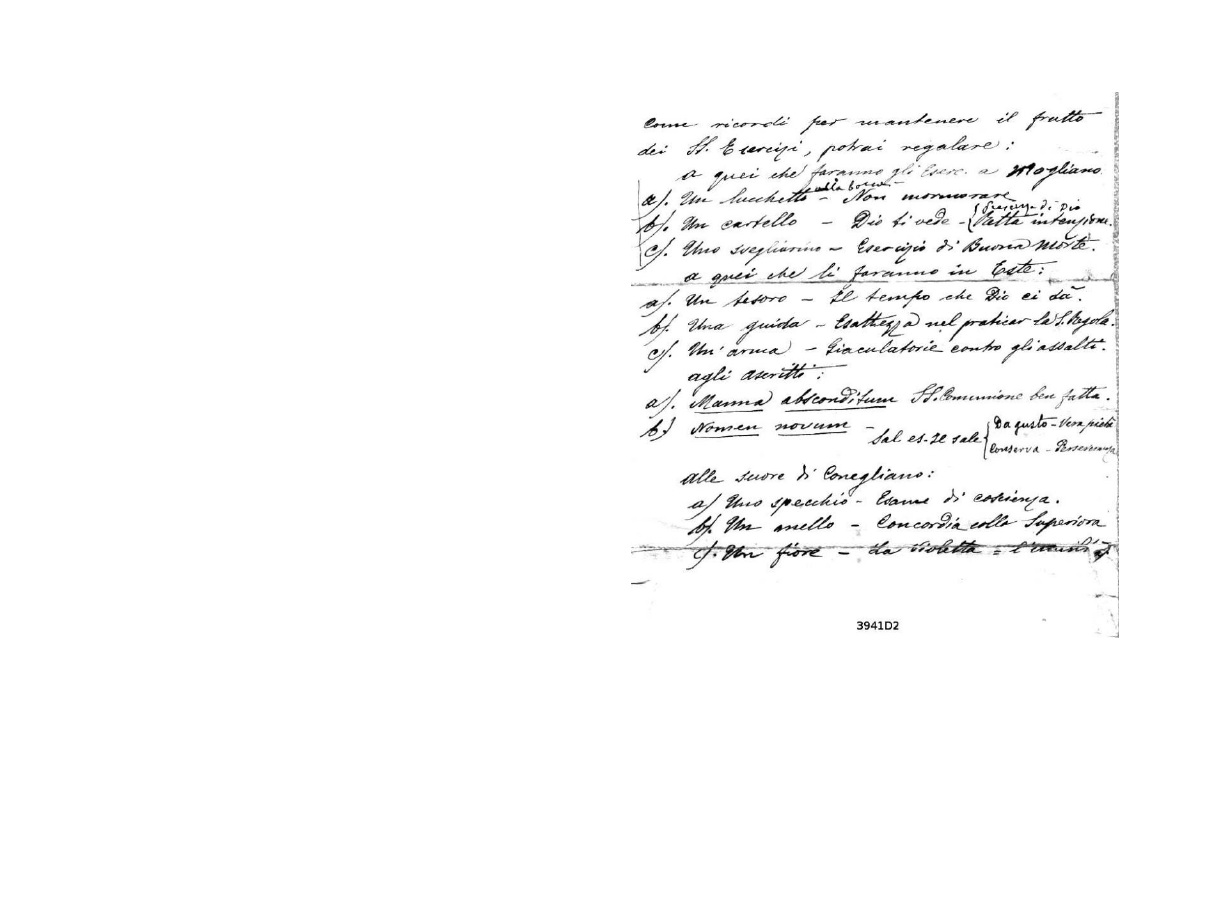 Come ricordi per mantenere il frutto
dei SS. Esercizi, potrai regalare:
a quei che faranno gli Eserc. a Mogliano
alla bocca
a). Un lucchetto - Non mormorare
Presenza di Dio
b). Un cartello - Dio ti vede - Retta intenzione.
c). Uno svegliarino - Esercizio di Buona Morte.
a quei che li faranno in Este:
a). Un tesoro - Il tempo che Dio ci dà.
b). Una guida - Esattezza nel praticar la S. Regola.
c). Un' arma - Giaculatorie contro gli assalti.
agli ascritti:
a). Manna absconditum SS. Comunione ben fatta.
b) Nomen novum -
Sal es. Il sale
Da gusto - Vera pietà
Conserva - Perseveranza
alle suore di Conegliano:
a) Uno specchio - Esame di coscienza.
b). Un anello - Concordia colla Superiora
c). Un fiore - La Violetta = l'umiltà
3941D2